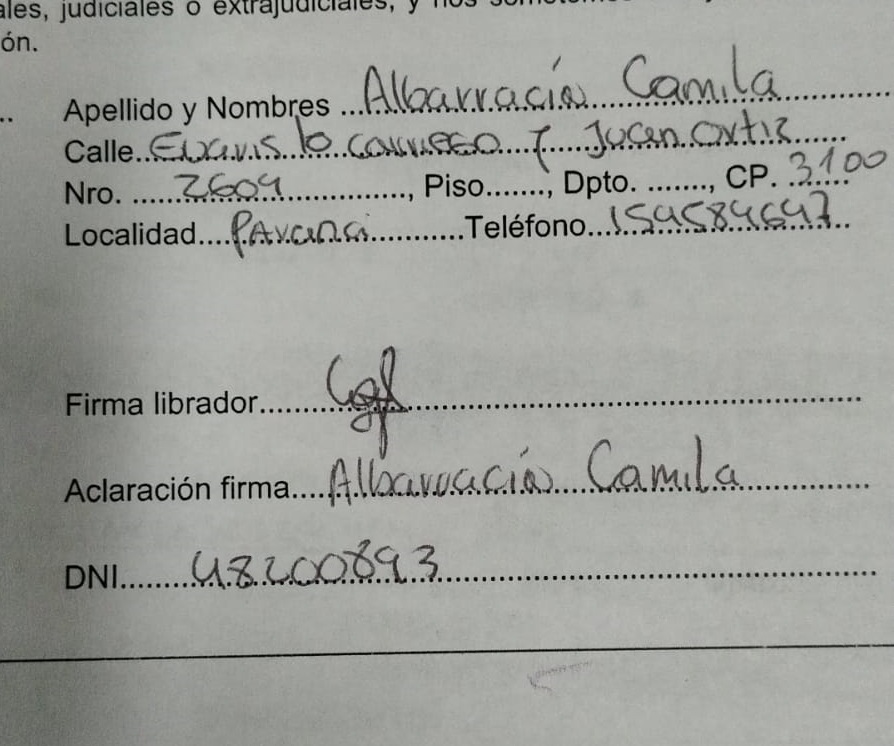 ales, judiciales o extrajudiciales, y nos
ón.
.. Apellido y Nombres ... Albarracín Camila
Calle.. Evaristo Carriego y Juan Ortiz
Nro. ..... 2609 ....., Piso......., Dpto. ......., CP. 3100
Localidad.... Paraná ...........Teléfono... 154584647
Firma librador....
Aclaración firma.... Albarracín Camila
DNI....... 48200893